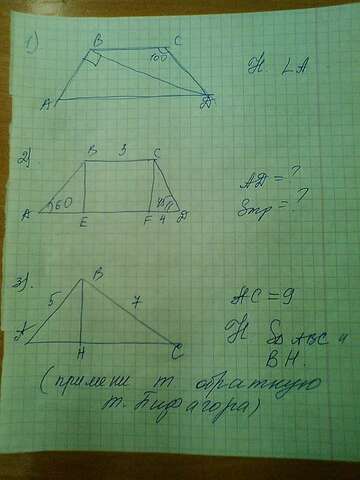 1)
B C
100
A D
Н. ∠A
2).
B 3 C
A 60 45 D
E F 4
AD = ?
Sтр = ?
3).
B
5 7
A H C
AC = 9
Н S△ABC и
BH.
(примени т обратную
т. Пифагора)